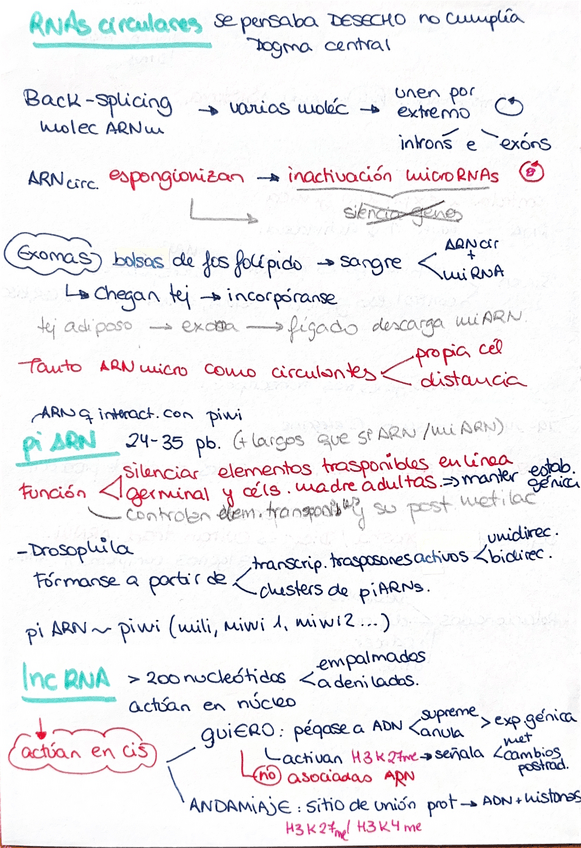 RNAs circulares se pensaba DESECHO no cumplía
Dogma central
Back-splicing → varias moléc → unen por
molec ARNm extremo
intróns e exóns
ARN circ. espongionizan → inactivación microRNAs
silencia genes
Exomas bolsas de fosfolípido → sangre ARNcir
+
miRNA
↳ Chegan tej → incorpóranse
tej adiposo → exoma → fígado descarga miARN.
Tanto ARN micro como circulantes propia cél
distancia
ARN q interact. con piwi
pi ARN 24-35 pb. (+ largos que siARN / miARN)
Función silenciar elementos trasponibles en línea
germinal y céls. madre adultas. ⇒ manter estab.
génica
controlen elem. transponibles y su post metilac
- Drosophila
Fórmanse a partir de transcrip. trasposones activos unidirec.
bidirec.
clusters de piARNs.
pi ARN ~ piwi (mili, miwi 1, miwi2 ...)
lnc RNA > 200 nucleótidos empalmados
adenilados.
actúan en núcleo
actúan en cis
GUIERO: pégase a ADN supreme
anula > exp génica
activan H3K27me → señala met
cambios
postrad.
no asociadas ARN
ANDAMIAJE: sitio de unión prot → ADN + histonas
H3K27me/ H3K4me